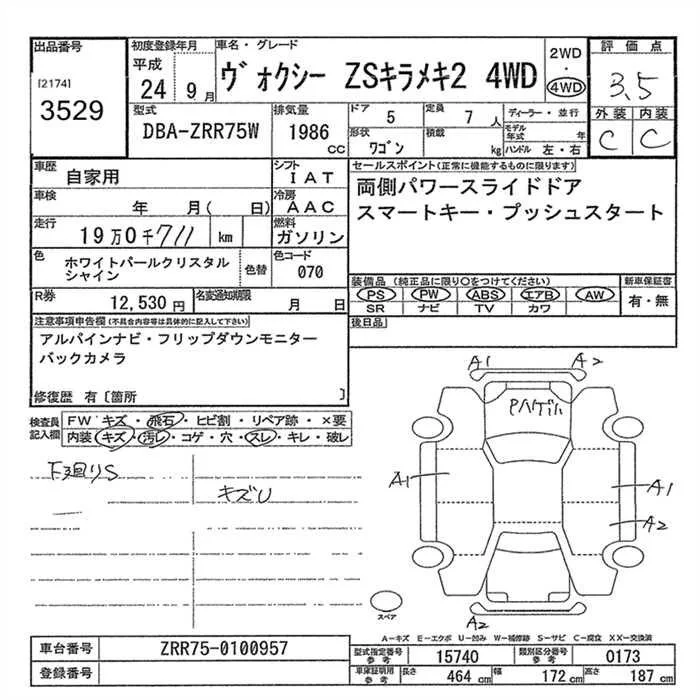 出品番号
[2174]
3529
初度登録年月
平成
24 9月
車名・グレード
ヴォクシー ZSキラメキ2 4WD
2WD
・
4WD
評価点
3.5
外装 内装
C C
型式
DBA-ZRR75W
排気量
1986
CC
ドア 5
定員 7 人
形状 ワゴン
積載 kg
ディーラー・並行
モデル年式 年
ハンドル 左・右
車歴 自家用
シフト IAT
車検 年 月( 日)
冷房 AAC
走行 19万0千711 km
燃料 ガソリン
色 ホワイトパールクリスタル
シャイン
色替
色コード 070
R券 12,530 円
名変通知期限 月 日
セールスポイント(正常に機能するものに限ります)
両側パワースライドドア
スマートキー・プッシュスタート
装備品 (純正品に限り○をつけてください)
PS PW ABS エアB AW
SR ナビ TV カワ
新車保証書
有・無
後日品
注意事項申告欄(不具合内容等は具体的に記入して下さい)
アルパインナビ・フリップダウンモニター
バックカメラ
修復歴 有〔箇所 〕
検査員
記入欄
FW キズ・飛石・ヒビ割・リペア跡・×要
内装 キズ・汚レ・コゲ・穴・スレ・キレ・破レ
下廻りS
キズU
A1 A2
A1
A1
A2
A2
スペア
A−キズ E−エクボ U−凹み W−補修跡 S−サビ C−腐食 XX−交換済
車台番号 ZRR75-0100957
登録番号
型式指定番号
参考
15740
類別区分番号
参考
0173
車庫証明用
参考
長さ 464 cm 幅 172 cm 高さ 187 cm